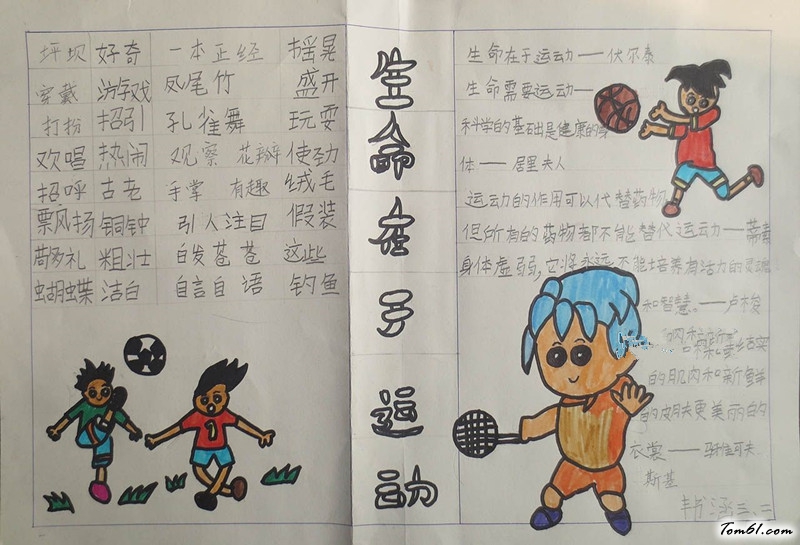 坪坝 好奇 一本正经 摇晃
穿戴 游戏 凤尾竹 盛开
打扮 招引 孔雀舞 玩耍
欢唱 热闹 观察 花瓣 使劲
招呼 古老 手掌 有趣 绒毛
飘扬 铜钟 引人注目 假装
敬礼 粗壮 白发苍苍 这些
蝴蝶 洁白 自言自语 钓鱼
生命在于运动
生命在于运动——伏尔泰
生命需要运动——
科学的基础是健康的身
体——居里夫人
运动的作用可以代替药物
但所有的药物都不能替代运动——蒂素
身体虚弱,它将永远不能培养有活力的灵魂
和智慧。——卢梭
结实
的肌肉和新鲜
的皮肤更美丽的
衣裳——
斯基
韦涵 三、二
Tom61.com